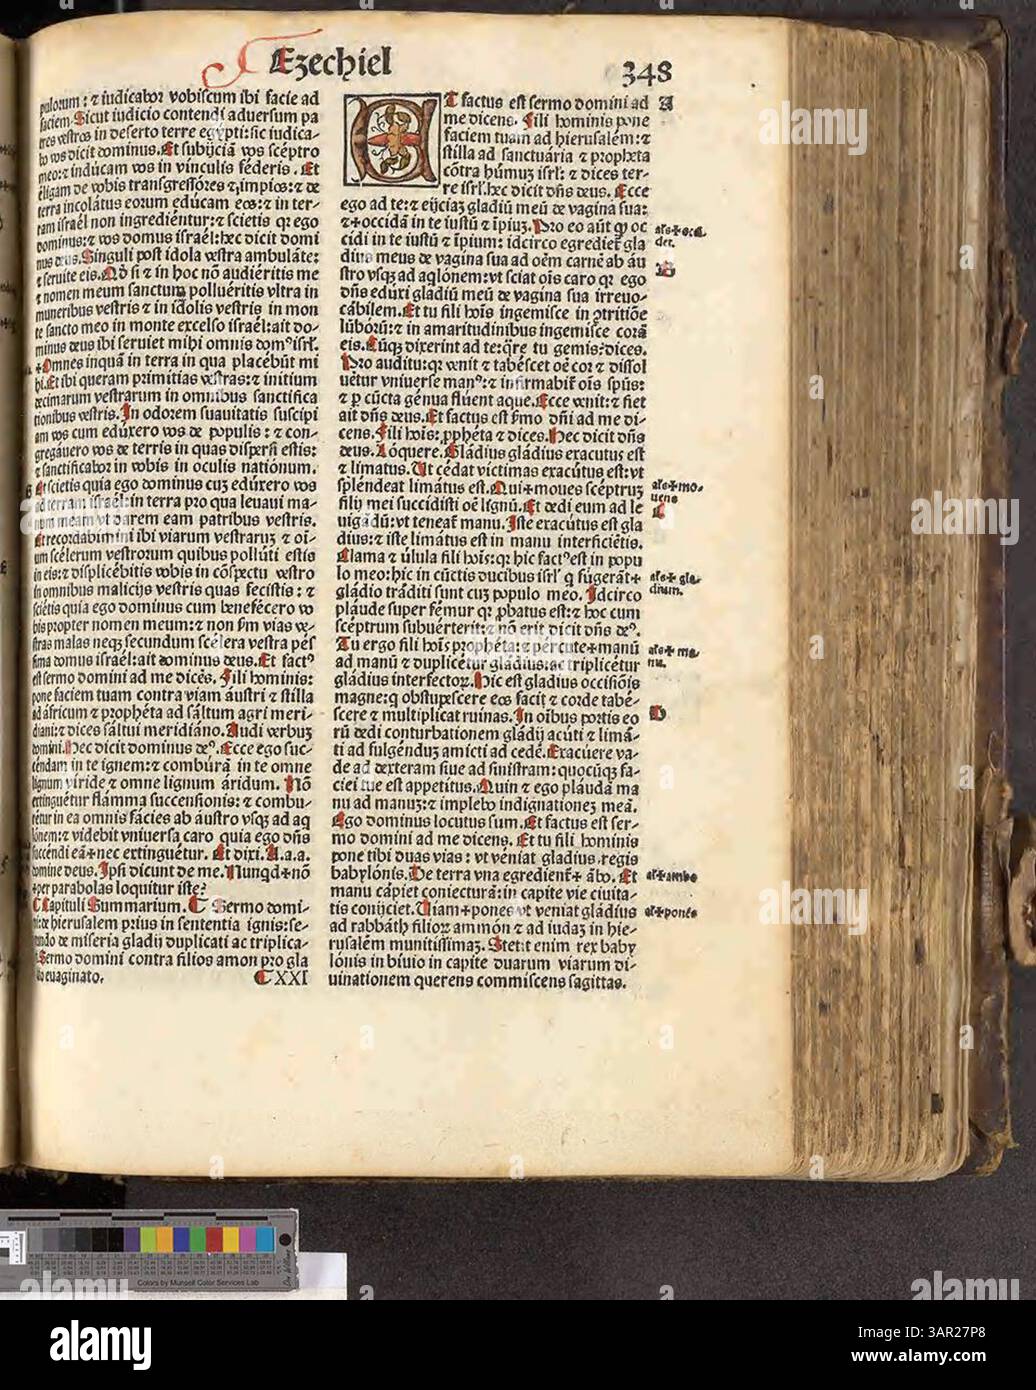 Ezechiel
348
pulorum: ⁊ iudicabor vobiscum ibi facie ad
faciem. Sicut iudicio contendi aduersum pa
tres vestros in deserto terre egypti: sic iudica-
bo vos dicit dominus. Et subijciā vos scéptro
meo: ⁊ indúcam vos in vinculis féderis. Et
éligam de vobis transgressóres ⁊ impios: ⁊ de
terra incolátus eorum edúcam eos: ⁊ in ter-
ram israél non ingrediéntur: ⁊ scietis qꝛ ego
dominus: ⁊ vos domus israél: hec dicit domi
nus deus. Singuli post idola vestra ambuláte:
⁊ seruite eis. Qđ si ⁊ in hoc nō audiéritis me
⁊ nomen meum sanctum polluéritis vltra in
muneribus vestris ⁊ in idolis vestris in mon
te sancto meo in monte excelso israél: ait do-
minus deus ibi seruiet mihi omnis domꝰ isrl̓.
+Omnes inquā in terra in qua placébūt mi
hi. Et ibi queram primitias vestras: ⁊ initium
decimarum vestrarum in omnibus sanctifica
tionibus vestris. In odorem suauitatis suscipi
am vos cum edúxero vos de populis: ⁊ con-
gregáuero vos de terris in quas dispersi estis:
⁊ sanctificabor in vobis in oculis nationum.
Et scietis quia ego dominus cuꝫ edúxero vos
ad terram israél: in terra pro qua leuaui ma-
num meam vt darem eam patribus vestris.
Et recordabimini ibi viarum vestraruꝫ ⁊ oi-
um scélerum vestrorum quibus pollúti estis
in eis: ⁊ displicébitis vobis in cōspectu vestro
in omnibus malicijs vestris quas fecistis: ⁊
sciétis quia ego dominus cum benefécero vo
bis propter nomen meum: ⁊ non s̄m vias ve-
stras malas neqꝫ secundum scélera vestra pés
sima domus israél: ait dominus deus. Et factꝰ
est sermo domini ad me dicēs. Fili hominis:
pone faciem tuam contra viam áustri ⁊ stilla
ad áfricum ⁊ prophéta ad sáltum agri meri-
diani: ⁊ dices sáltui meridiáno. Audi verbuꝫ
domini. Hec dicit dominus deꝰ. Ecce ego suc-
céndam in te ignem: ⁊ comburā in te omne
lignum viride ⁊ omne lignum áridum. Nō
extinguétur flamma succensionis: ⁊ combu-
rétur in ea omnis fácies ab áustro vsqꝫ ad aq
lónem: ⁊ videbit vniuersa caro quia ego dn̄s
succéndi eā+nec extinguétur. Et dixi. A.a.a.
domine deus. Ipsi dicunt de me. Nunqđ+nō
+per parabolas loquitur iste?
¶ Capituli Summarium. ¶ Sermo domi-
ni: de hierusalem prius in sententia ignis: se-
cundo de miseria gladij duplicati ac triplica-
ti. Sermo domini contra filios amon pro gla
dio euaginato. ¶ XXI
ET factus est sermo domini ad
me dicens. Fili hominis pone
faciem tuam ad hierusalém: ⁊
stilla ad sanctuária ⁊ propheta
cōtra húmuꝫ isrl̓: ⁊ dices ter-
re isrl̓. hec dicit dn̄s deus. Ecce
ego ad te: ⁊ eijciaꝫ gladiū meū de vagina sua:
⁊+occidā in te iustū ⁊ īpiuꝫ. Pro eo aūt qđ oc
cidi in te iustū ⁊ īpium: idcirco egrediet̄ gla
dius meus de vagina sua ad oēm carnē ab áu
stro vsqꝫ ad aqlónem: vt sciat oīs caro qꝛ ego
dn̄s edúxi gladiū meū de vagina sua irreuo-
cábilem. Et tu fili hoīs ingemisce in ꝯtritiōe
lūborū: ⁊ in amaritudinibus ingemisce corā
eis. Cūqꝫ dixerint ad te: q̄re tu gemis? dices.
Pro auditu: qꝛ venit ⁊ tabéscet oē cor ⁊ dissol
uétur vniuerse manꝰ: ⁊ infirmabit̄ oīs spūs:
⁊ ꝑ cūcta génua flúent aque. Ecce venit: ⁊ fiet
ait dn̄s deus. Et factus est s̄mo dn̄i ad me di-
cens. Fili hoīs: ꝓphéta ⁊ dices. Hec dicit dn̄s
deus. Lóquere. Gládius gládius exacutus est
⁊ limatus. Ut cédat victimas exacútus est: vt
spléndeat limátus est. Qui+moues scéptruꝫ
filij mei succidisti oē lignū. Et dedi eum ad le
uigādū: vt teneat̄ manu. Iste exacútus est gla
dius: ⁊ iste limátus est in manu interficiētis.
Clama ⁊ úlula fili hoīs: qꝛ hic factꝰ est in popu
lo meo: hic in cūctis ducibus isrl̓ q fúgerāt+
gládio tráditi sunt cuꝫ populo meo. Idcirco
pláude super fémur qꝛ ꝓbatus est: ⁊ hoc cum
scéptrum subuérterit: ⁊ nō erit dicit dn̄s deꝰ.
Tu ergo fili hoīs prophéta: ⁊ pércute+manū
ad manū ⁊ duplicétur gládius: ac triplicétur
gládius interfectoꝝ. Hic est gladius occisiōis
magne: q obstupéscere eos facit ⁊ corde tabé-
scere ⁊ multiplicat ruinas. In oībus portis eo
rū dedi conturbationem gládij acúti ⁊ limá-
ti ad fulgénduꝫ amicti ad cedē. Exacuere va-
de ad déxteram siue ad sinistram: quocūqꝫ fa-
ciei tue est appetitus. Quin ⁊ ego pláudā ma
nu ad manuꝫ: ⁊ implebo indignationeꝫ meā.
Ego dominus locutus sum. Et factus est ser-
mo domini ad me dicens. Et tu fili hominis
pone tibi duas vias: vt véniat gladius regis
babylónis. De terra vna egredient̄+ābo. Et
manu cápiet coniecturā: in capite vie ciuita-
tis conijciet. Uiam+pones vt veniat gládius
ad rabbáth filioꝝ ammón ⁊ ad iudaꝫ in hie-
rusalém munitissimaꝫ. Stetit enim rex baby
lónis in biuio in capite duarum viarum di-
uinationem querens commiscens sagittas.
A
als+occi
der.
B
als+mo-
uens
C
als+gla-
dium.
als+ma-
nu.
D
al+ambe
al+ponēs
Colors by Munsell Color Services Lab
alamy
Image ID: 3AR27P8
www.alamy.com